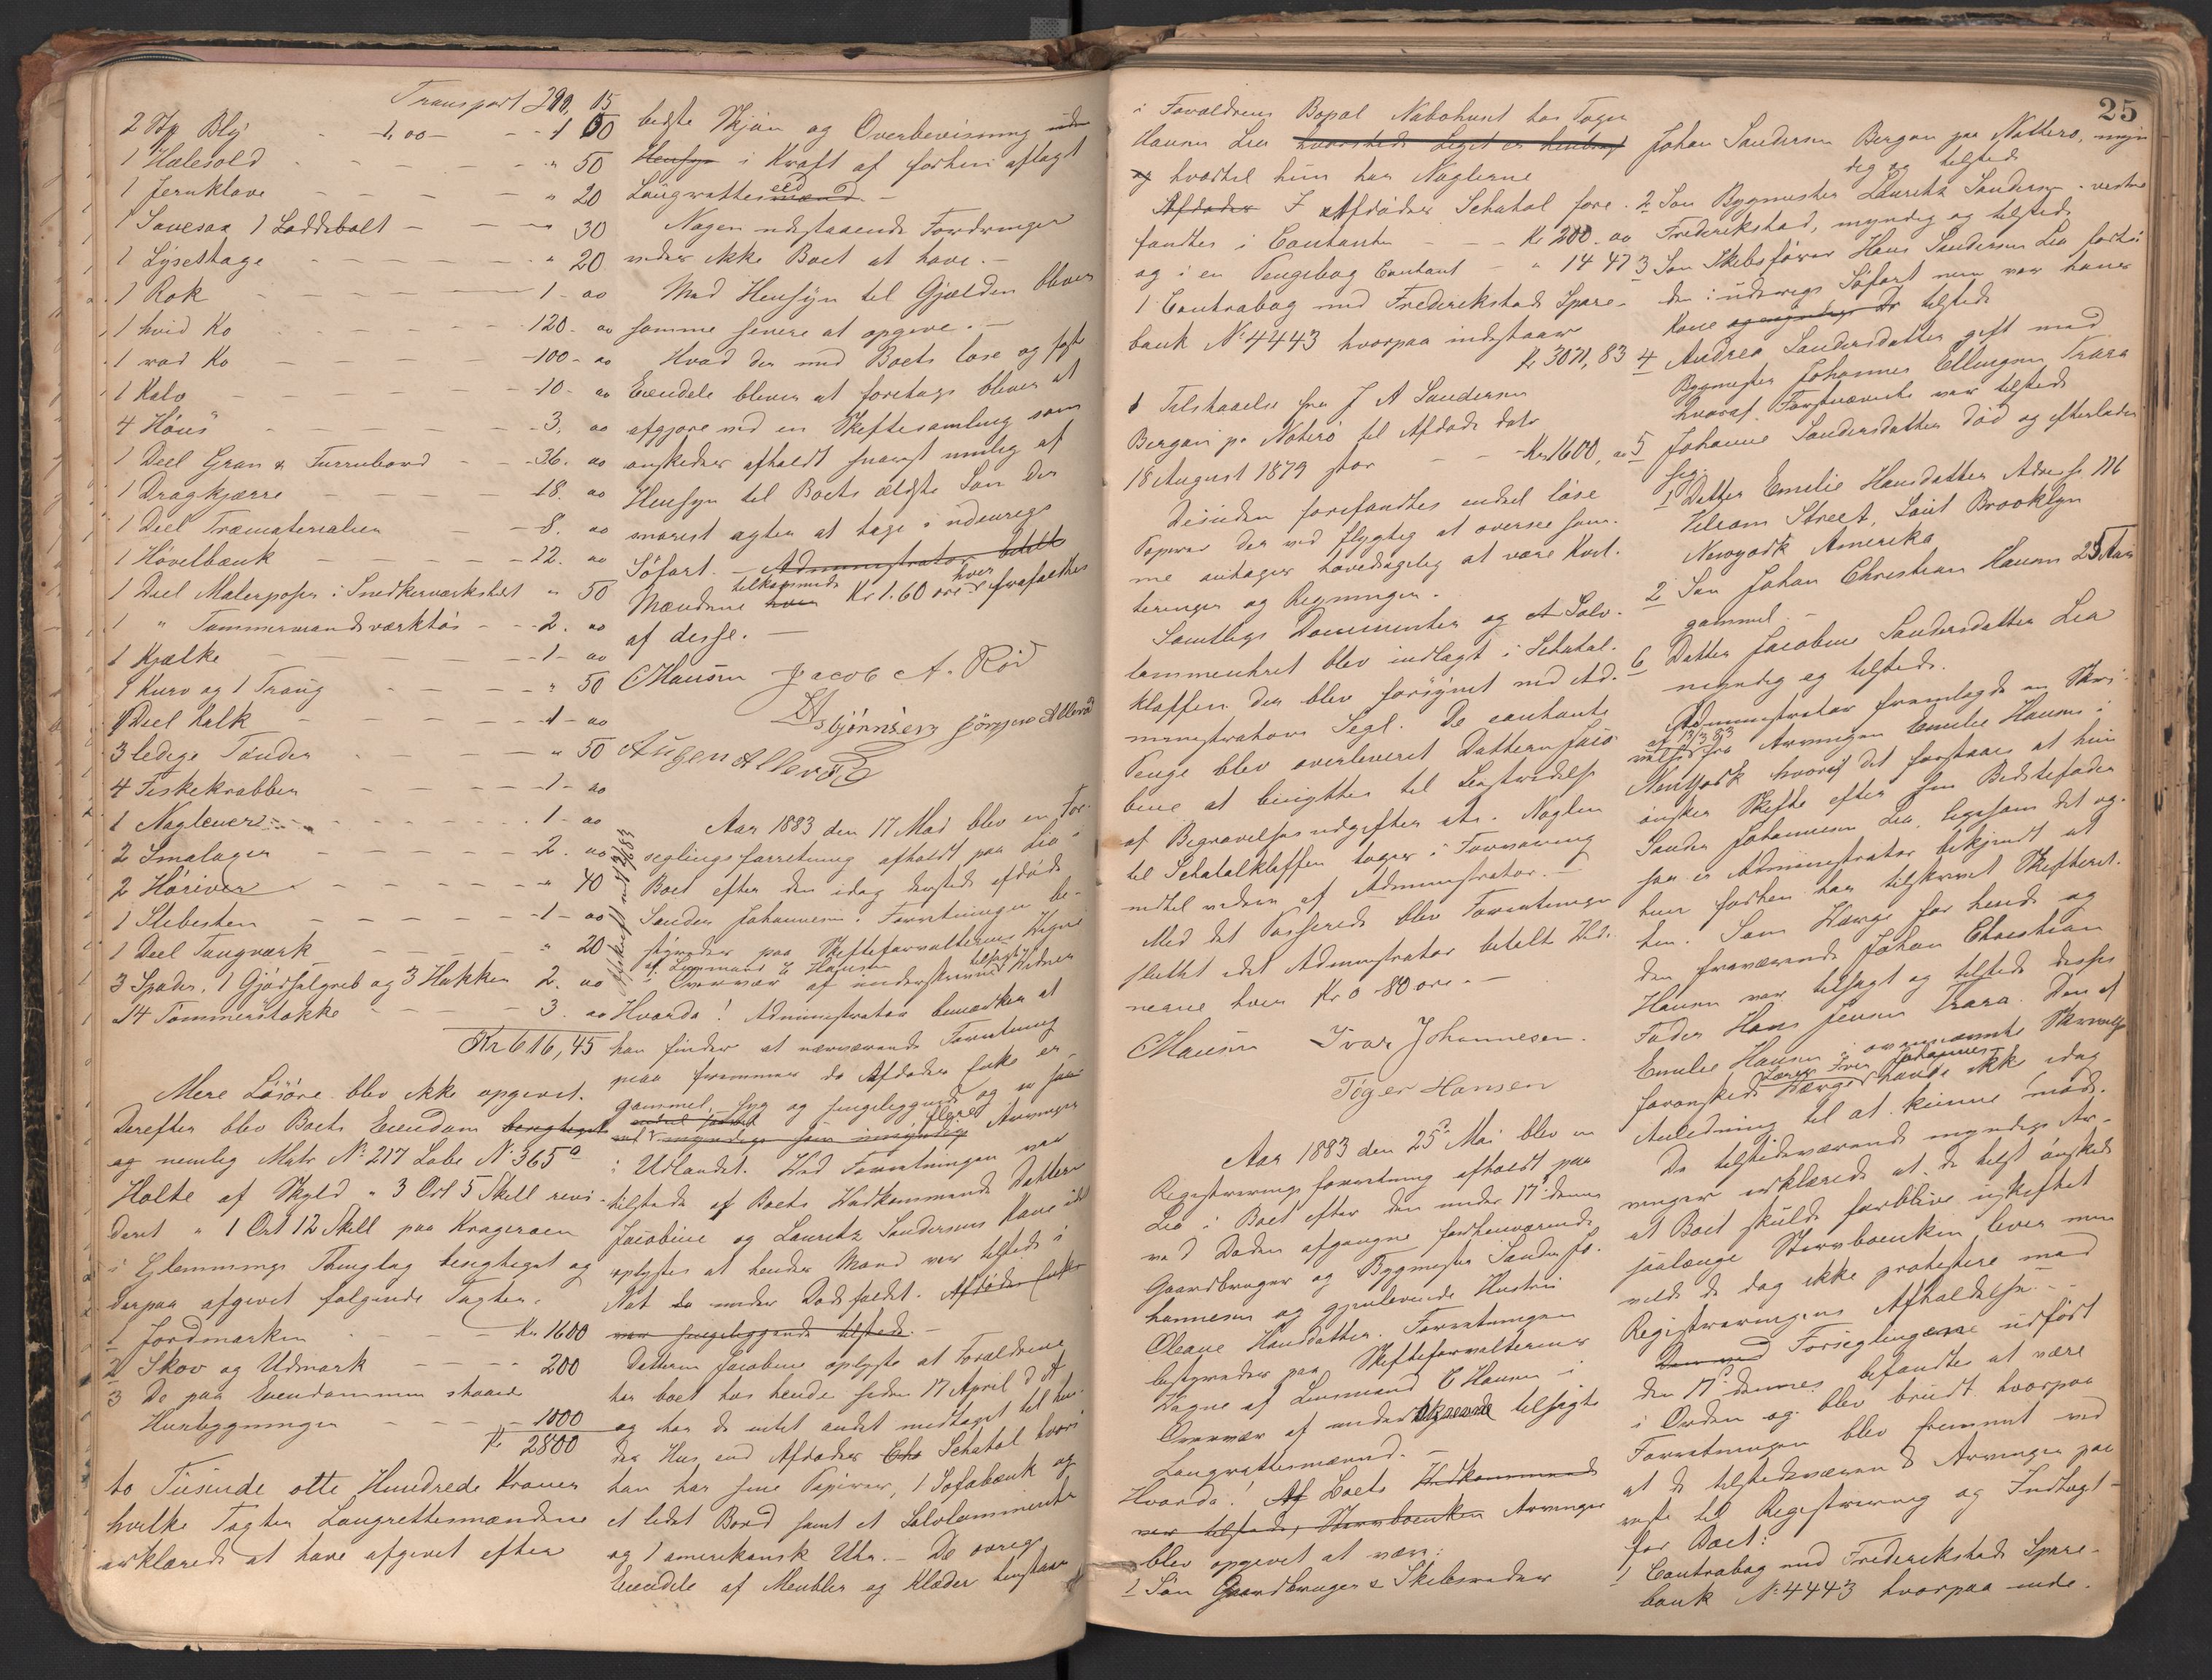 Transport 290, 05
2 Stp Bly - 1,00 - - 1 00
1 Hælesold - - - " 50
1 Jernklave - - - " 20
1 Savesax 1 Loddebolt - - - 30
1 Lysestage - - - " 20
1 Rok - - - 1 - 00
1 hvid Ko - - - 120 - 00
1 rød Ko - - - 100 - 00
1 Kalv - - - 10 - 00
4 Høns - - - 3, 00
1 Deel Gran & Furrubord - - 36. 00
1 Dragkjærre - - - 18. 00
1 Deel Træmaterialier - - 8. 00
1 Høvelbænk - - - 12. 00
1 Deel Malerposer i Snedkerværkstedet " 50
1 " Tømmermandsværktøi - - 2. 00
1 Kjælke - - - 1 - 00
1 Kurv og 1 Traug - - - " 50
1 Deel Kalk - - - 1 - 00
3 ledige Tønder - - - " 50
4 Fiskekrabber - - - 1 - 00
1 Nagleuer - - - 1 - 00
2 Smalager - - - 2. 00
2 Høriver - - - " 40
1 Slibesten - - - 1 - 00
1 Deel Taugværk - - - " 20
3 Spader, 1 Gjødselgreb og 3 Hakker 2. 00
14 Tømmerstokke - - - 3. 00
Kr 616, 45
Mere Løsøre blev ikke opgivet.
Derefter blev Boets Eiendom besigtiget
og nemlig Matr No 217 Løbe No 365a
Holte af Skyld " 3 Ort 5 Skill revi-
deret " 1 Ort 12 Skill paa Kragerøen
i Glemminge Thinglag besigtiget og
derpaa afgivet følgende Taxter.
1 Jordmarken - - - Kr. 1600
2 Skov og Udmark - - - 200
3 De paa Eiendommen staaende
Huusbygninger - - - 1000
Kr 2800
to Tusinde otte Hundrede Kroner
hvilke Taxter Laugrettesmændene
erklærede at have afgivet efter
bedste Skjøn og Overbevisning uden
Hensyn i Kraft af forhen aflagt
Laugrettesmænd eed -
Nogen udestaaende Fordringer
vides ikke Boet at have. -
Med Hensyn til Gjælden bliver
samme senere at opgive. -
Hvad der med Boets løse og faste
Eiendele bliver at foretage bliver at
afgjøre ved en Skiftesamling som
ønskedes afholdt snarest mulig af
Hensyn til Boets ældste Søn der
snarest agter at tage i udenrigs
Søfart. - Administrator betalte
Mændene hver tilkommende Kr 1.60 øre hver frafaldtes
af disse. -
CHansen Jacob A. Rød
Asbjørnsen Jørgen Allerød
Augen Allerød
Afskrift ud 12/6 83
Aar 1883 den 17 Mai blev en For-
seglingsforretning afholdt paa Lea i
Boet efter den idag dersteds afdøde
Sander Johannesen. Forretningen be-
styredes paa Skifteforvalterens Vegne
af Lensmand C Hansen
i Overvær af underskrevne tilsagte Vidner
Hvorda! Administrator bemærker at
han finder at nærværende Forretning
maa fremmes da Afdødes Enke er
gammel, syg og sengeliggende og er saavel
endel fravær flere
ved myndige som umyndige Arvinger
i Udlandet. Ved Forretningen var
tilstede af Boets Vedkommende Datteren
Jacobine og Lauritz Sandersens Kone idet
oplystes at hendes Mand var tilstede i
Nat da under Dødsfaldet. Afdødes Enke
var sengeliggende tilstede. -
Datteren Jacobine oplyste at Forældrene
har boet hos hende siden 17 April d A
og har de intet andet medtaget til hen-
des Hus end Afdødes Cha Schatol hvori
han har sine Papirer, 1 Sofabænk og
et lidet Bord samt et Sølvlommeuhr
og 1 amerikansk Uhr. - De øvrige
Eiendele af Meubler og Klæder henstaar
25
i Forældrenes Bopæl Nabohuset hos Toger
Hansen Lea hvorsteds Liget er henbragt
og hvortil hun har Nøglerne
Afdødes I Afdødes Schatol fore-
fandtes i Contanter - - Kr 200. 00
og i en Pengebog Contant - " 14 47
1 Contrabog med Frederikstad Spare-
bank No 4443 hvorpaa indestaar
Kr 3071, 83
1 Tilstaaelse fra J A Sandersen
Bergan pr Nøterø til Afdøde dato
18 August 1879 stor - - Kr 1600, 00
Desuden forefandtes endel løse
Papirer der ved flygtig at oversee sam-
me antages hovedsagelig at være Kvit-
teringer og Regninger.
Samtlige Documenter og et Sølv-
lommeuhr blev indlagt i Schatol-
klaffen der blev forsynet med Ad-
ministrators Segl. De contante
Penge blev overleveret Datteren Jaco-
bine at benyttes til Bestridelse
af Begravelsesudgifter etc. Nøglen
til Schatolklaffen tages i Forvaring
indtil videre af Administrator. -
Med det Passerede blev Forretningen
sluttet idet Administrator betalte Vid-
nerne hver Kr 0 - 80 øre. -
CHansen Ivar Johannesen.
Tøger Hansen
Aar 1883 den 25de Mai blev en
Registreringsforretning afholdt paa
Lea i Boet efter den under 17 dennes
ved Døden afgangne forhenværende
Gaardbruger og Bygmester Sander Jo-
hannesen og gjenlevende Hustru
Oleane Hansdatter. Forretningen
bestyredes paa Skifteforvalterens
Vegne af Lensmand C Hansen i
Overvær af underskrevne tilsagte
Laugrettesmænd. -
Hvorda! Af Boets Vedkommende
var tilstede, Stervboenken Arvinger
blev opgivet at være:
1 Søn Gaardbruger & Skibsreder
Johan Sandersen Bergan paa Nøtterø, myn-
dig og tilstede
2 Søn Bygmester Lauritz Sandersen vestre
Frederikstad, myndig og tilstede
3 Søn Skibsfører Hans Sandersen Lea fortiden
i udenrigs Søfart men var hans
Kone og myndige er tilstede
4 Andrea Sandersdatter gift med
Bygmester Johannes Ellingsen Trara
hvoraf Førstnævnte var tilstede
5 Johanne Sandersdatter død og efterlader
sig:
1 Datter Emilie Hansdatter Adresse 116
Street, Brooklyn
Newyork Amerika
2 Søn Johan Christian Hansen 25 Aar
gammel. -
6 Datter Jacobine Sandersdatter Lea
myndig og tilstede.
Administrator fremlagde en Skri-
velse af 13/3 83 fra Arvingen Emilie Hansen i
New York hvoraf det forstaaes at hun
ønsker Skifte efter sin Bedstefader
Sander Johannesen Lea, ligesom det og-
saa er Administrator bekjendt at
hun forhen har tilskrevet Skifteret-
ten. Som Værge for hende og
den fraværende Johan Christian
Hansen var tilsagt og tilstede disses
Fader Hans Jensen Trara. Den af
Emilie Hansen i ovennævnte Skrivelse
forønskede Værge Lærer Iver Johannesen havde ikke idag
Anledning til at kunne møde.
De tilstedeværende myndige Ar-
vinger erklærede at de helst ønskede
at Boet skulde forblive uskiftet
saalænge Stervboenken lever men
vilde de dog ikke protestere mod
Registreringens Afholdelse. -
Den ved Forseglingerne udført
den 17 dennes befandtes at være
i Orden og blev brudt hvorpaa
Forretningen blev fremmet ved
at de tilstedeværende Arvinger paa
viste til Registrering og Indtægt
for Boet:
1 Contrabog med Frederikstads Spare-
bank No 4443 hvorpaa inde-